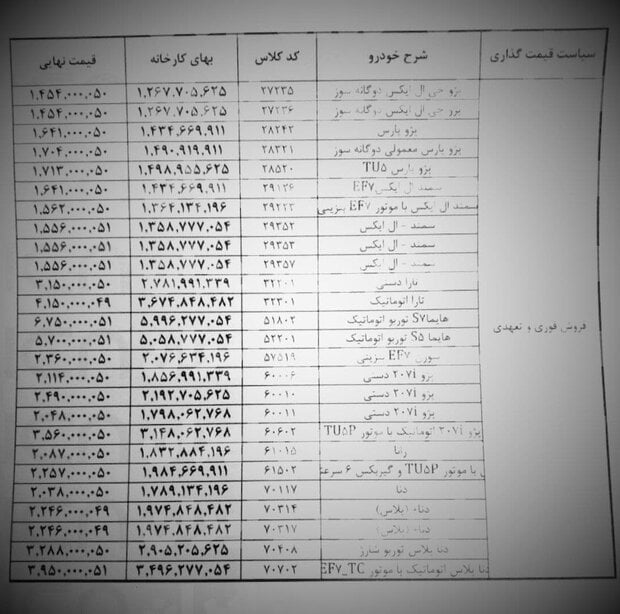 سیاست قیمت گذاری شرح خودرو کد کلاس بهای کارخانه قیمت نهایی
پژو جی ال ایکس دوگانه سوز ۲۷۲۳۵ ۱،۲۶۷،۷۰۵،۶۲۵ ۱،۴۵۴،۰۰۰،۰۵۰
پژو جی ال ایکس دوگانه سوز ۲۷۲۳۶ ۱،۲۶۷،۷۰۵،۶۲۵ ۱،۴۵۴،۰۰۰،۰۵۰
پژو پارس ۲۸۲۴۲ ۱،۴۳۴،۶۶۹،۹۱۱ ۱،۶۴۱،۰۰۰،۰۵۰
پژو پارس معمولی دوگانه سوز ۲۸۳۲۱ ۱،۴۹۰،۹۱۹،۹۱۱ ۱،۷۰۴،۰۰۰،۰۵۰
پژو پارس TU۵ ۲۸۵۲۰ ۱،۴۹۸،۹۵۵،۶۲۵ ۱،۷۱۳،۰۰۰،۰۵۰
سمند ال ایکس EF۷ ۲۹۱۳۶ ۱،۴۳۴،۶۶۹،۹۱۱ ۱،۶۴۱،۰۰۰،۰۵۰
سمند ال ایکس با موتور EF۷ بنزینی ۲۹۲۲۳ ۱،۳۶۴،۱۳۴،۱۹۶ ۱،۵۶۲،۰۰۰،۰۵۰
سمند - ال ایکس ۲۹۳۵۲ ۱،۳۵۸،۷۷۷،۰۵۴ ۱،۵۵۶،۰۰۰،۰۵۱
سمند - ال ایکس ۲۹۳۵۳ ۱،۳۵۸،۷۷۷،۰۵۴ ۱،۵۵۶،۰۰۰،۰۵۱
سمند - ال ایکس ۲۹۳۵۷ ۱،۳۵۸،۷۷۷،۰۵۴ ۱،۵۵۶،۰۰۰،۰۵۱
تارا دستی ۳۲۲۰۱ ۲،۷۸۱،۹۹۱،۳۳۹ ۳،۱۵۰،۰۰۰،۰۵۰
تارا اتوماتیک ۳۲۳۰۱ ۳،۶۷۴،۸۴۸،۴۸۲ ۴،۱۵۰،۰۰۰،۰۴۹
هایما S۷ توربو اتوماتیک ۵۱۸۰۲ ۵،۹۹۶،۲۷۷،۰۵۴ ۶،۷۵۰،۰۰۰،۰۵۱
فروش فوری و تعهدی هایما S۵ توربو اتوماتیک ۵۲۲۰۱ ۵،۰۵۸،۷۷۷،۰۵۴ ۵،۷۰۰،۰۰۰،۰۵۱
سورن EF۷ بنزینی ۵۷۵۱۹ ۲،۰۷۶،۶۳۴،۱۹۶ ۲،۳۶۰،۰۰۰،۰۵۰
پژو ۲۰۷i دستی ۶۰۰۰۶ ۱،۸۵۶،۹۹۱،۳۳۹ ۲،۱۱۴،۰۰۰،۰۵۰
پژو ۲۰۷i دستی ۶۰۰۱۰ ۲،۱۹۲،۷۰۵،۶۲۵ ۲،۴۹۰،۰۰۰،۰۵۰
پژو ۲۰۷i دستی ۶۰۰۱۱ ۱،۷۹۸،۰۶۲،۷۶۸ ۲،۰۴۸،۰۰۰،۰۵۰
پژو ۲۰۷i اتوماتیک با موتور TU۵P ۶۰۶۰۲ ۳،۱۴۸،۰۶۲،۷۶۸ ۳،۵۶۰،۰۰۰،۰۵۰
رانا ۶۱۰۱۵ ۱،۸۳۲،۸۸۴،۱۹۶ ۲،۰۸۷،۰۰۰،۰۵۰
با موتور TU۵P و گیربکس ۶ سرعته ۶۱۵۰۲ ۱،۹۸۴،۶۶۹،۹۱۱ ۲،۲۵۷،۰۰۰،۰۵۰
دنا ۷۰۱۱۷ ۱،۷۸۹،۱۳۴،۱۹۶ ۲،۰۳۸،۰۰۰،۰۵۰
دنا+ (پلاس) ۷۰۳۱۴ ۱،۹۷۴،۸۴۸،۴۸۲ ۲،۲۴۶،۰۰۰،۰۴۹
دنا+ (پلاس) ۷۰۳۱۷ ۱،۹۷۴،۸۴۸،۴۸۲ ۲،۲۴۶،۰۰۰،۰۴۹
دنا پلاس توربو شارژ ۷۰۴۰۸ ۲،۹۰۵،۲۰۵،۶۲۵ ۳،۲۸۸،۰۰۰،۰۵۰
دنا پلاس اتوماتیک با موتور EF۷_TC ۷۰۷۰۲ ۳،۴۹۶،۲۷۷،۰۵۴ ۳،۹۵۰،۰۰۰،۰۵۱